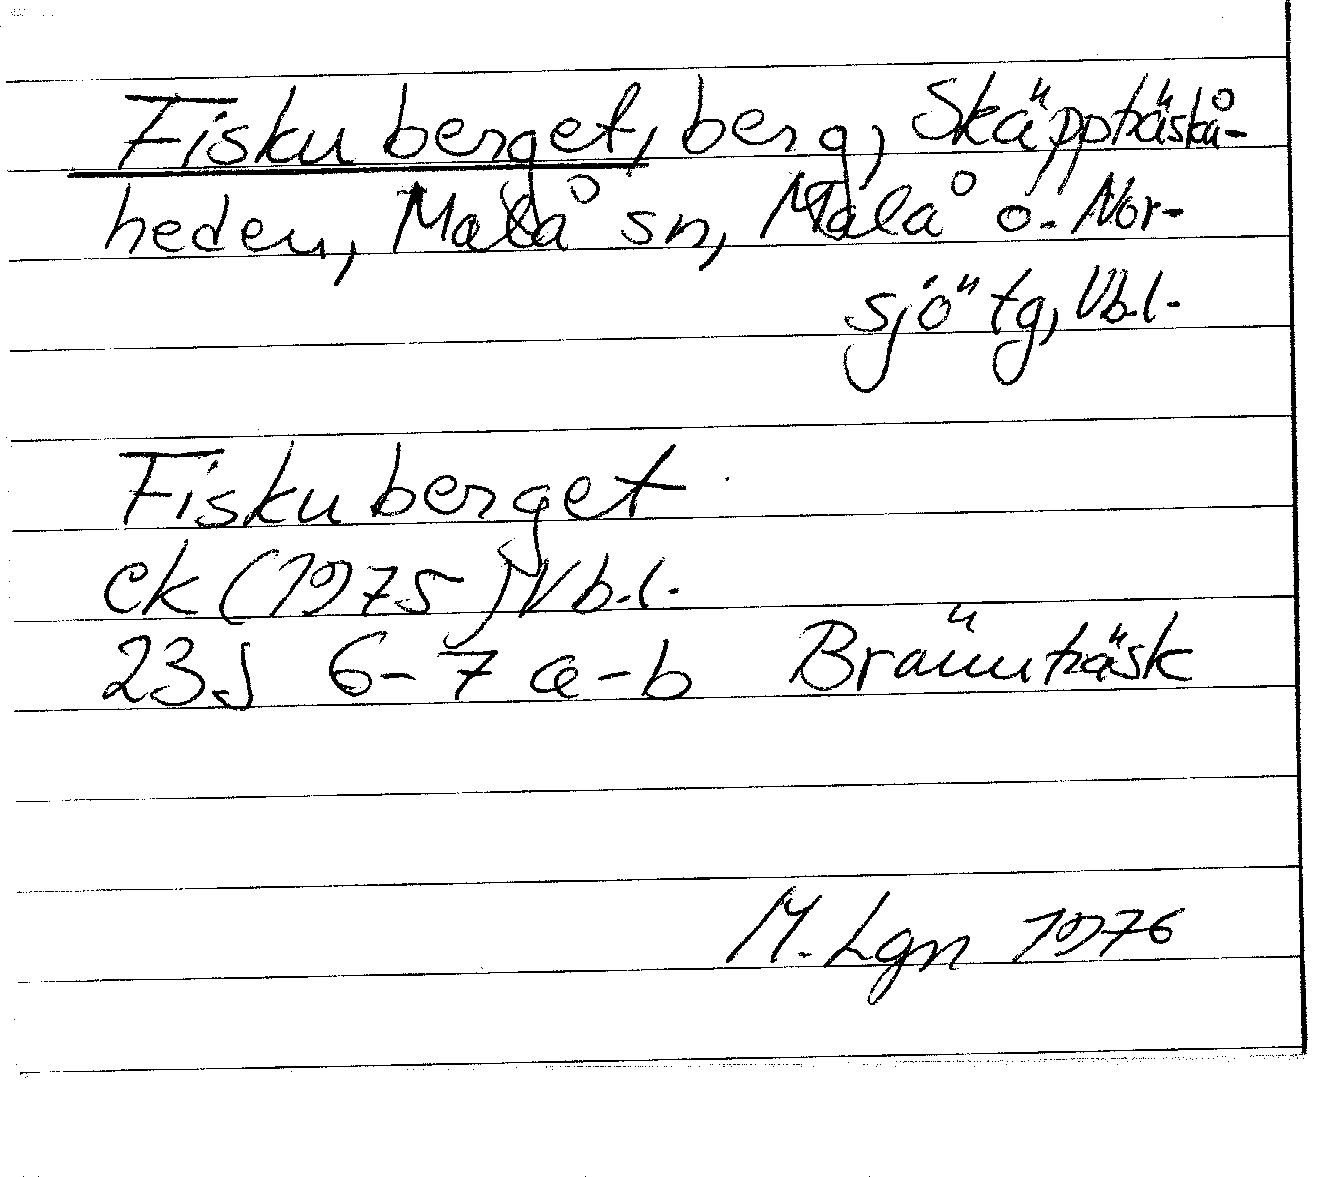 Fiskuberget, berg, Skäppträskå-
heden, Malå sn, Malå o. Nor-
sjö tg, Vb.l.
Fiskuberget
ek (1975) Vb.l.
23J 6-7 a-b Brännträsk
M. Lgn 1976